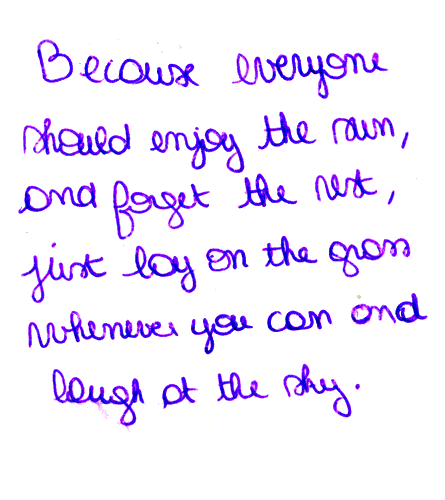 Because everyone
should enjoy the sun,
and forget the rest,
just lay on the grass
whenever you can and
laugh at the sky.